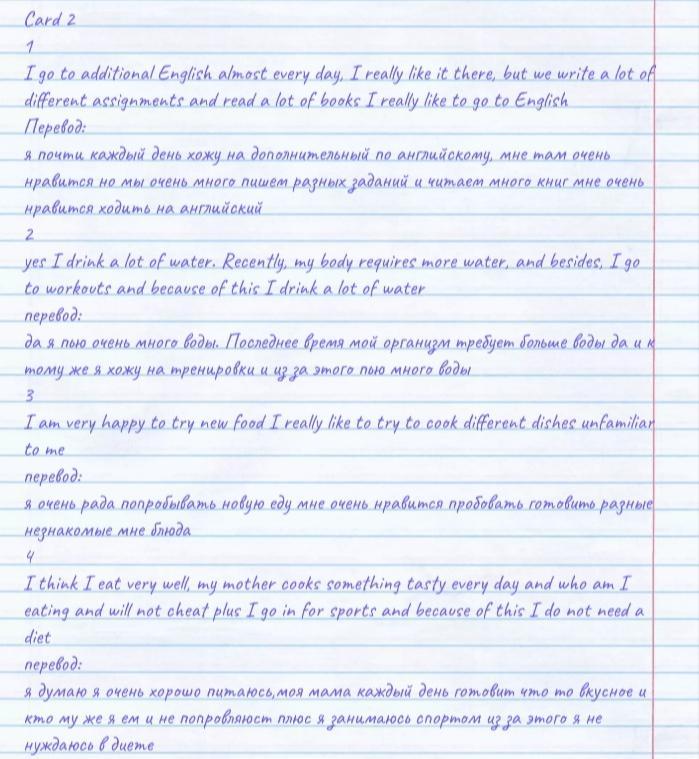 Card 2
1
I go to additional English almost every day, I really like it there, but we write a lot of
different assignments and read a lot of books I really like to go to English
Перевод:
я почти каждый день хожу на дополнительный по английскому, мне там очень
нравится но мы очень много пишем разных заданий и читаем много книг мне очень
нравится ходить на английский
2
yes I drink a lot of water. Recently, my body requires more water, and besides, I go
to workouts and because of this I drink a lot of water
перевод:
да я пью очень много воды. Последнее время мой организм требует больше воды да и к
тому же я хожу на тренировки и из за этого пью много воды
3
I am very happy to try new food I really like to try to cook different dishes unfamiliar
to me
перевод:
я очень рада попробывать новую еду мне очень нравится пробовать готовить разные
незнакомые мне блюда
4
I think I eat very well, my mother cooks something tasty every day and who am I
eating and will not cheat plus I go in for sports and because of this I do not need a
diet
перевод:
я думаю я очень хорошо питаюсь,моя мама каждый день готовит что то вкусное и
кто му же я ем и не попровляюст плюс я занимаюсь спортом из за этого я не
нуждаюсь в диете